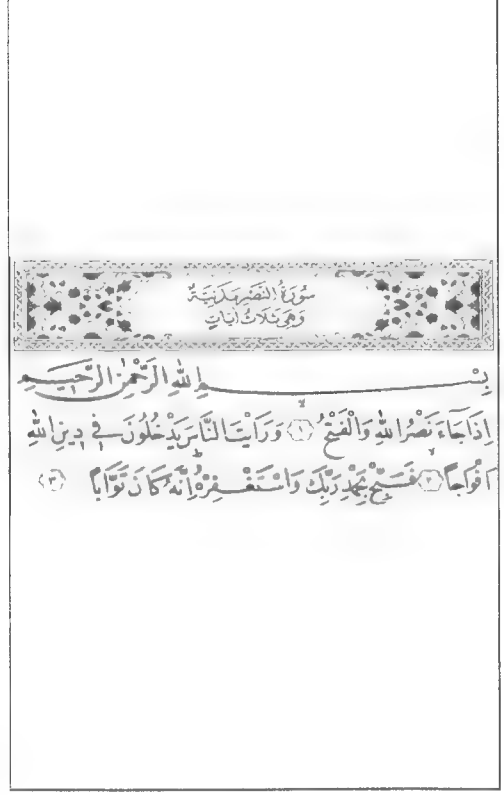 سُورَةُ النَّصْرِ مَدَنِيَّةٌ
وَهِيَ ثَلَاثُ اٰيَاتٍ
بِسْمِ اللّٰهِ الرَّحْمٰنِ الرَّحِيمِ
اِذَا جَاءَ نَصْرُ اللّٰهِ وَالْفَتْحُ ﴿١﴾ وَرَاَيْتَ النَّاسَ يَدْخُلُونَ فِي دِينِ اللّٰهِ
اَفْوَاجاً ﴿٢﴾ فَسَبِّحْ بِحَمْدِ رَبِّكَ وَاسْتَغْفِرْهُ اِنَّهُ كَانَ تَوَّاباً ﴿٣﴾